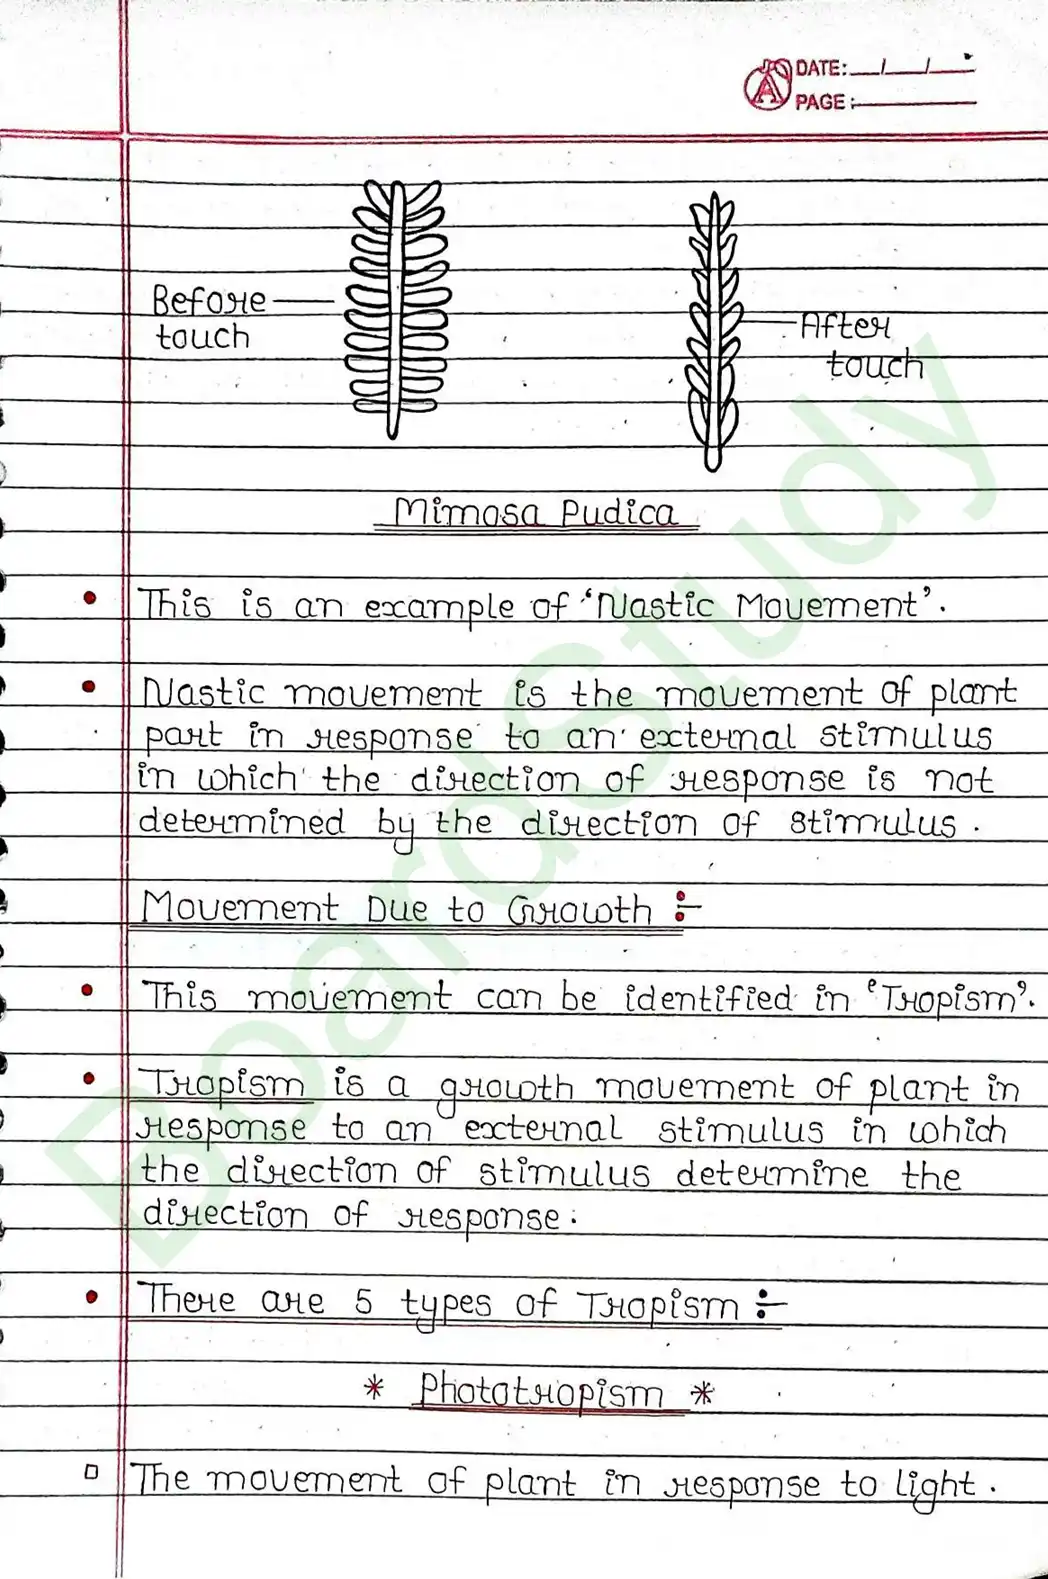 DATE: / /
PAGE :
Before
touch
After
touch
Mimosa Pudica
• This is an example of 'Nastic Movement'.
• Nastic movement is the movement of plant
part in response to an external stimulus
in which the direction of response is not
determined by the direction of stimulus.
Movement Due to Growth :-
• This movement can be identified in 'Tropism'.
• Tropism is a growth movement of plant in
response to an external stimulus in which
the direction of stimulus determine the
direction of response.
• There are 5 types of Tropism :-
* Phototropism *
□ The movement of plant in response to light.
BoardStudy